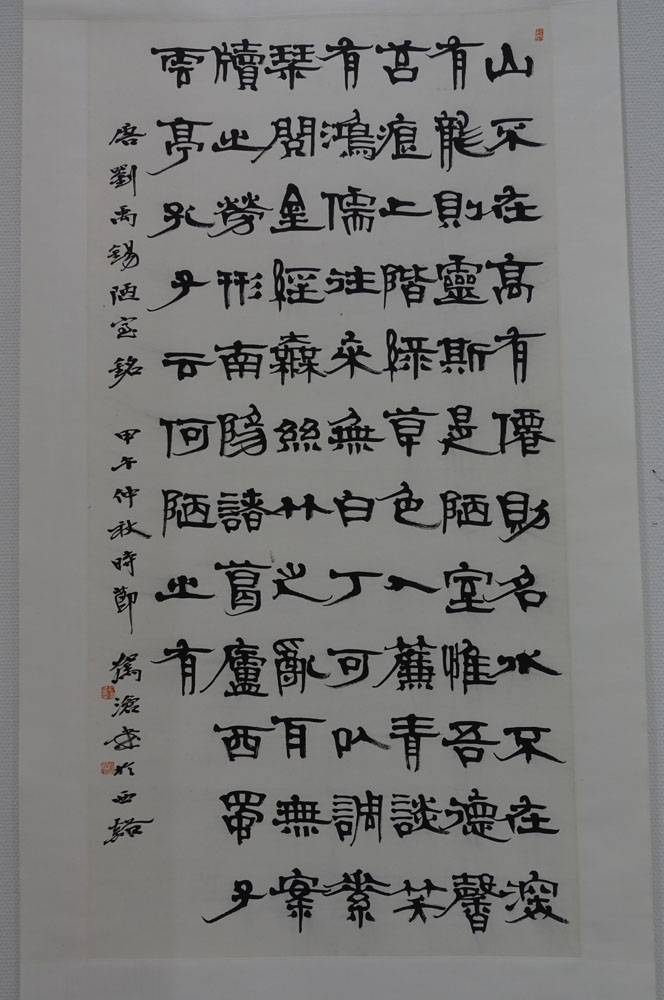 山不在高有僊則名水不在深
有龍則靈斯是陋室惟吾德馨
苔痕上階綠草色入簾青談笑
有鴻儒往來無白丁可以調素
琹閱金經無絲竹之亂耳無案
牘之勞形南陽諸葛廬西蜀子
雲亭孔子云何陋之有
唐劉禹錫陋室銘 甲午仲秋時節 滄 於西谿